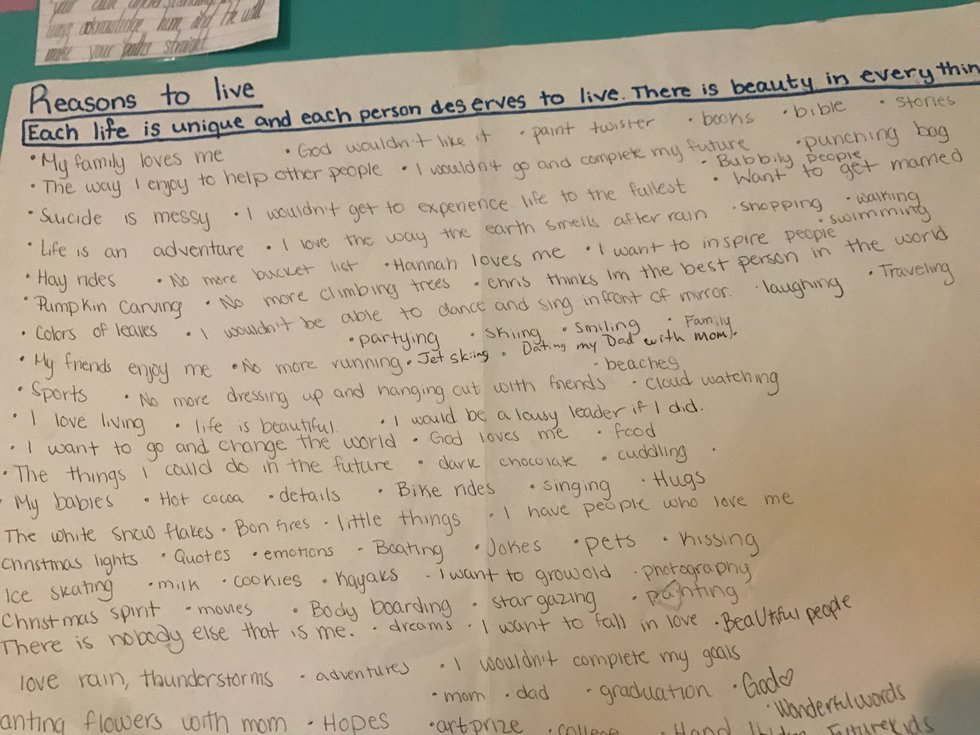 your own understanding
ways acknowledge him, and He will
make your paths straight
Reasons to live
Each life is unique and each person deserves to live. There is beauty in everythin
• My family loves me • God wouldn't like it • paint twister • books • bible • stories
• The way I enjoy to help other people • I wouldn't go and complete my future • punching bag
• Suicide is messy • I wouldn't get to experience life to the fullest • Bubbily people • Want to get married
• Life is an adventure • I love the way the earth smells after rain • shopping • walking
• Hay rides • No more bucket list • Hannah loves me • I want to inspire people • swimming
• Pumpkin Carving • No more climbing trees • chris thinks Im the best person in the world
• Colors of leaves • I wouldn't be able to dance and sing infront of mirror. • laughing • Traveling
• partying • skiing • smiling • Family
• My friends enjoy me • No more running • Jet skiing • Dating my Dad with mom).
• beaches
• Sports • No more dressing up and hanging out with friends • cloud watching
• I love living • life is beautiful • I would be a lousy leader if I did.
• I want to go and change the world • God loves me • food
• The things I could do in the future • dark chocolate • cuddling •
• My babies • Hot cocoa • details • Bike rides • singing • Hugs
The white snow flakes • Bonfires • little things • I have people who love me
Christmas lights • Quotes • emotions • Boating • Jokes • pets • kissing
Ice skating • milk • cookies • Kayaks • I want to grow old • photography
Christmas spirit • movies • Body boarding • star gazing • painting
There is nobody else that is me. • dreams • I want to fall in love • Beautiful people
love rain, thunderstorms • adventures • I wouldn't complete my goals
• mom • dad • graduation • God♡
• Wonderful words
anting flowers with mom • Hopes • artprize • College • Hand Future kids